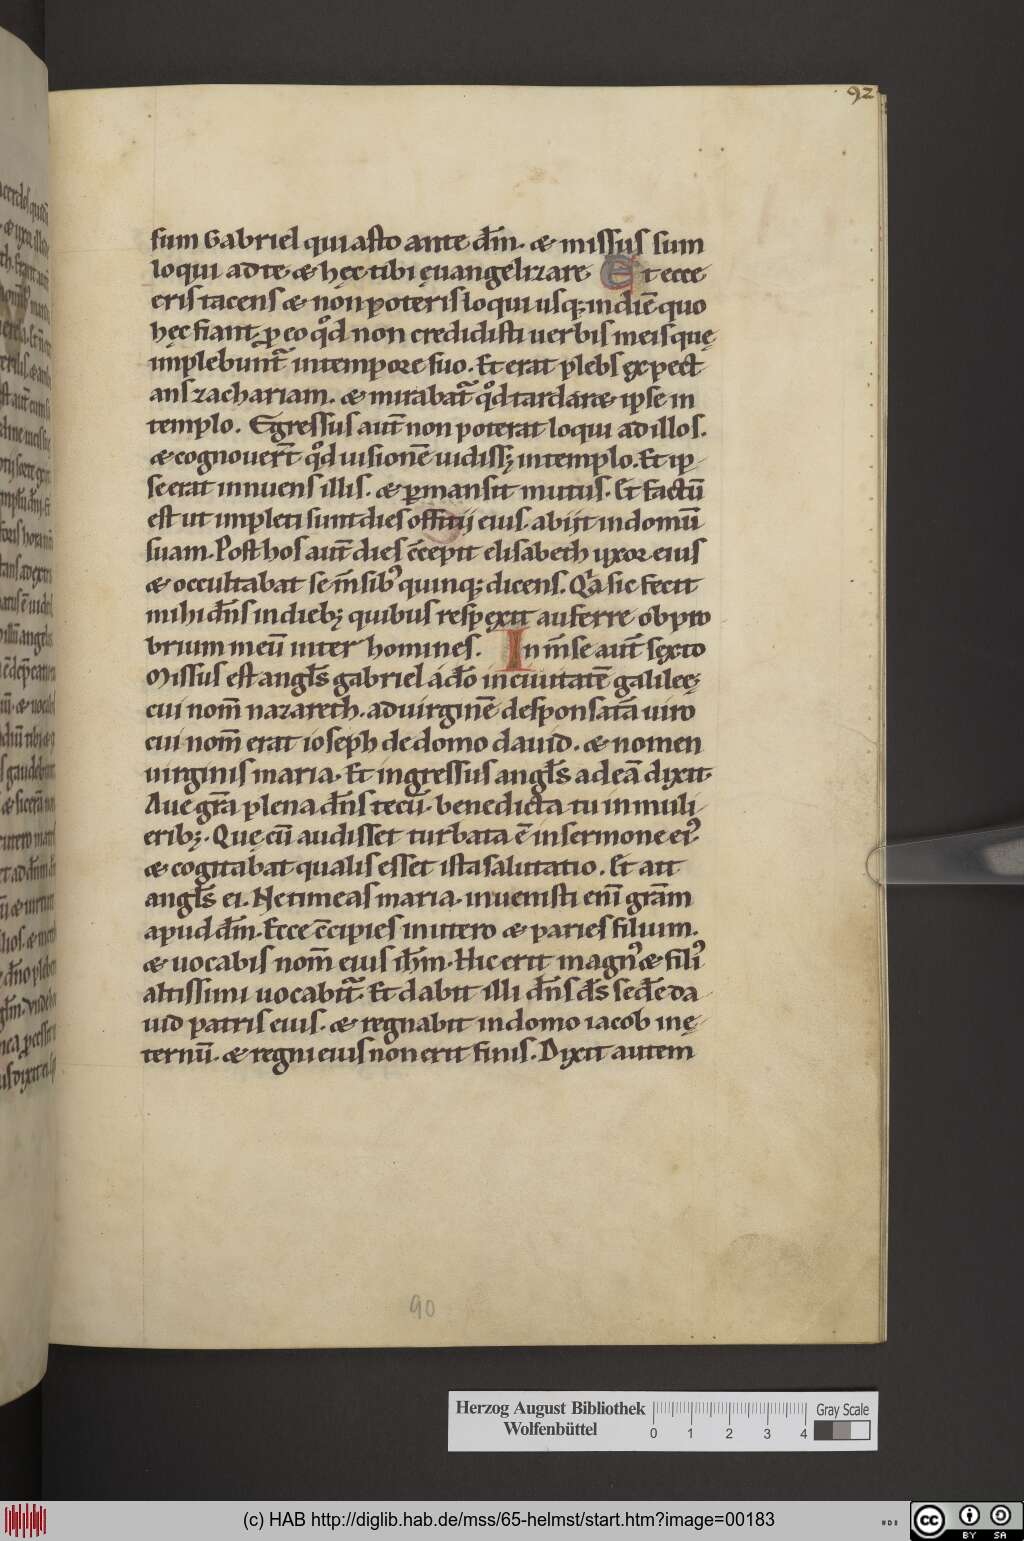 92
sum Gabriel qui asto ante dm̄. & missus sum
loqui ad te. & hęc tibi euangelizare. Et ecce
eris tacens & non poteris loqui usq; in diē quo
hęc fiant. ꝓ eo qd̊ non credidisti uerbis meis quę
implebunt᷑ in tempore suo. Et erat plebs ęxpect
ans zachariam. & mirabat᷑ qd̊ tardar& ipse in
templo. Egressus aut̄ non poterat loqui ad illos.
& cognouer̄t qd̊ uisionē uidiss& in templo. Et ip
se erat innuens illis. & ꝑmansit mutus. Et factū
est ut impleti sunt dies offitij eius. abijt in domū
suam. Post hos aut̄ dies c̄cepit elisabeth uxor eius
& occultabat se m̄sib᷒ quinq; dicens. Qͣa sic fecit
mihi dn̄s in dieb; quibus respęxit auferre obpro
brium meū inter homines. In m̄se aut̄ sęxto
Missus est angl̄s gabriel a dō in ciuitatē galileę;
cui nom̄ nazareth. ad uirginē desponsatā uiro
cui nom̄ erat ioseph de domo dauid. & nomen
uirginis maria. Et ingressus angl̄s ad eā dixit.
Aue grā plena dn̄s tecū. benedicta tu in muli
erib;. Quę cū audisset turbata ē in sermone ei᷒.
& cogitabat qualis esset ista salutatio. Et ait
angl̄s ei. Ne timeas maria. inuenisti eni̅ grām
apud dm̄. Ecce c̄cipies in utero & paries filium.
& uocabis nom̄ eius ihm̄. Hic erit magn᷒ & fili᷒
altissimi uocabit᷑. Et dabit illi dn̄s ds̄ sedē da
uid patris eius. & regnabit in domo iacob in ę
ternū. & regni eius non erit finis. Dixit autem
90
Herzog August Bibliothek
Wolfenbüttel
0 1 2 3 4
Gray Scale
HAB
(c) HAB http://diglib.hab.de/mss/65-helmst/start.htm?image=00183
cc BY SA